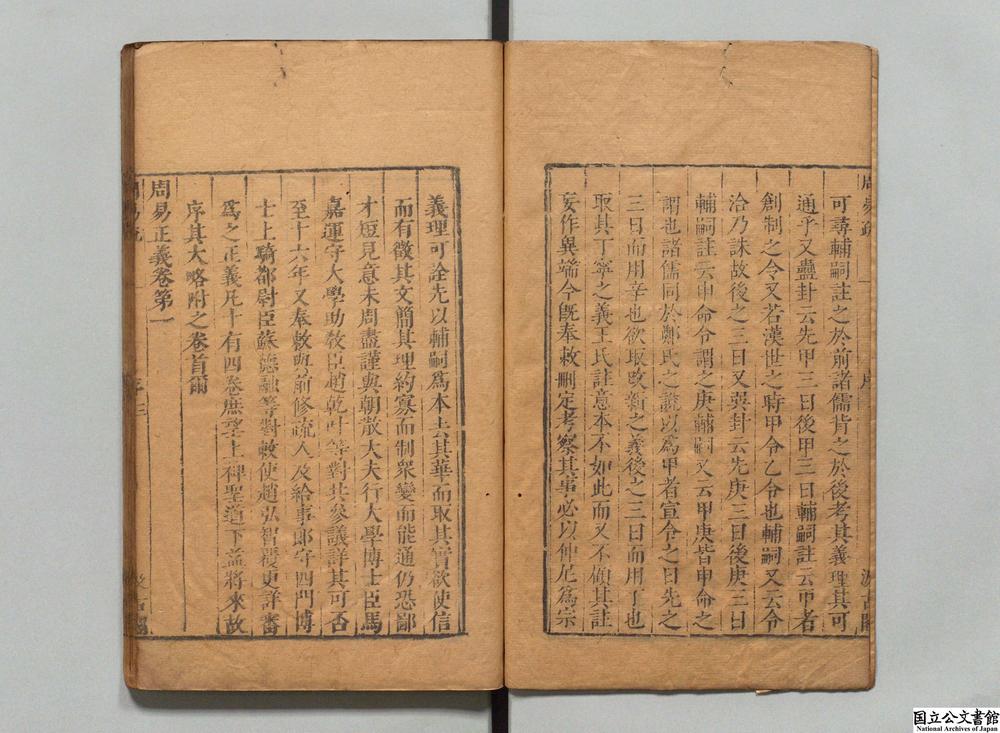 可尋輔嗣註之於前諸儒背之於後考其義理其可
通乎又蠱卦云先甲三日後甲三日輔嗣註云甲者
創制之令又若漢世之時甲令乙令也輔嗣又云令
洽乃誅故後之三日又巽卦云先庚三日後庚三日
輔嗣註云申命令謂之庚輔嗣又云甲庚皆申命之
謂也諸儒同於鄭氏之說以為甲者宣令之日先之
三日而用辛也欲取改新之義後之三日而用丁也
取其丁寧之義王氏註意本不如此而又不顧其註
妄作異端今既奉敕刪定考察其事必以仲尼為宗
義理可詮先以輔嗣為本去其華而取其實欲使信
而有徵其文簡其理約寡而制眾變而能通仍恐鄙
才短見意未周盡謹與朝散大夫行大學博士臣馬
嘉運守大學助敎臣趙乾叶等對共參議詳其可否
至十六年又奉敕與前修疏人及給事郎守四門博
士上騎都尉臣蘇德融等對敕使趙弘智覆更詳審
為之正義凡十有四卷庶望上裨聖道下益將來故
序其大略附之卷首爾
周易正義卷第一
国立公文書館
National Archives of Japan